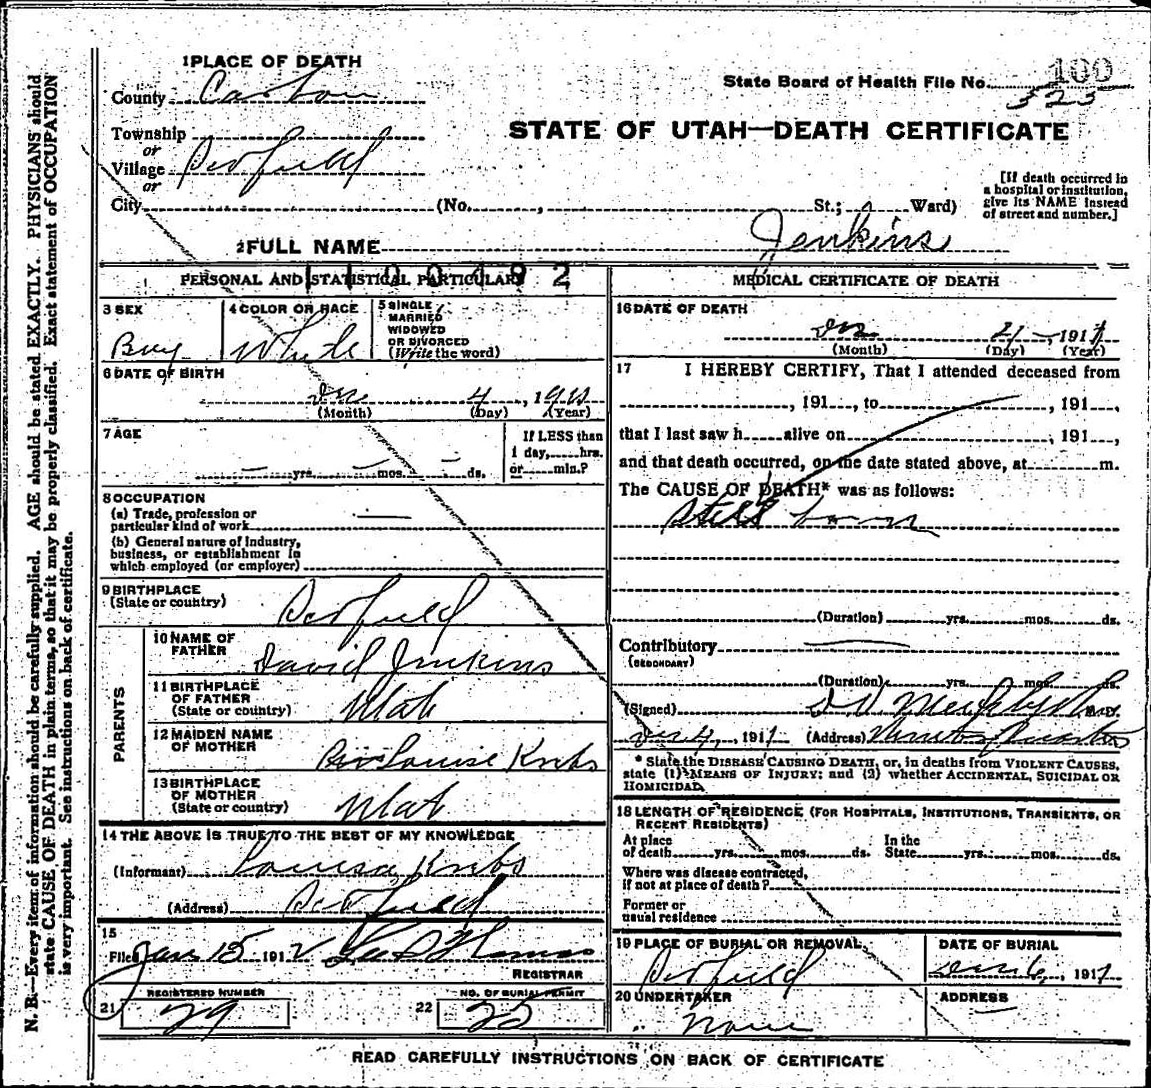 1 PLACE OF DEATH
County Carbon
State Board of Health File No. 100
325
Township
or
Village
or
STATE OF UTAH—DEATH CERTIFICATE
City (No. , St.; Ward)
[If death occurred in
a hospital or institution,
give its NAME instead
of street and number.]
2 FULL NAME Jenkins
PERSONAL AND STATISTICAL PARTICULARS
3 SEX
Boy
4 COLOR OR RACE
White
5 SINGLE
MARRIED
WIDOWED
OR DIVORCED
(Write the word)
6 DATE OF BIRTH
Dec 4, 1911
(Month) (Day) (Year)
7 AGE
yrs. mos. ds.
If LESS than
1 day, hrs.
or min.?
8 OCCUPATION
(a) Trade, profession or
particular kind of work
(b) General nature of industry,
business, or establishment in
which employed (or employer)
9 BIRTHPLACE
(State or country)
PARENTS
10 NAME OF
FATHER
David Jenkins
11 BIRTHPLACE
OF FATHER
(State or country) Utah
12 MAIDEN NAME
OF MOTHER
Louise Krebs
13 BIRTHPLACE
OF MOTHER
(State or country) Utah
14 THE ABOVE IS TRUE TO THE BEST OF MY KNOWLEDGE
(Informant) Louisa Krebs
(Address)
15
Filed Jan 15 1912
REGISTRAR
21 REGISTERED NUMBER
29
22 NO. OF BURIAL PERMIT
22
MEDICAL CERTIFICATE OF DEATH
16 DATE OF DEATH
Dec 4, 1911
(Month) (Day) (Year)
17 I HEREBY CERTIFY, That I attended deceased from
, 191 , to , 191 ,
that I last saw h alive on , 191 ,
and that death occurred, on the date stated above, at m.
The CAUSE OF DEATH* was as follows:
Still born
(Duration) yrs. mos. ds.
Contributory
(SECONDARY)
(Duration) yrs. mos. ds.
(Signed)
Dec 4, 1911 (Address)
* State the DISEASE CAUSING DEATH, or, in deaths from VIOLENT CAUSES,
state (1) MEANS OF INJURY; and (2) whether ACCIDENTAL, SUICIDAL OR
HOMICIDAL.
18 LENGTH OF RESIDENCE (FOR HOSPITALS, INSTITUTIONS, TRANSIENTS, OR
RECENT RESIDENTS)
At place
of death yrs. mos. ds.
In the
State yrs. mos. ds.
Where was disease contracted,
if not at place of death?
Former or
usual residence
19 PLACE OF BURIAL OR REMOVAL
DATE OF BURIAL
Dec 6, 1911
20 UNDERTAKER
None
ADDRESS
READ CAREFULLY INSTRUCTIONS ON BACK OF CERTIFICATE
N. B.—Every item of information should be carefully supplied. AGE should be stated EXACTLY. PHYSICIANS should
state CAUSE OF DEATH in plain terms, so that it may be properly classified. Exact statement of OCCUPATION
is very important. See instructions on back of certificate.